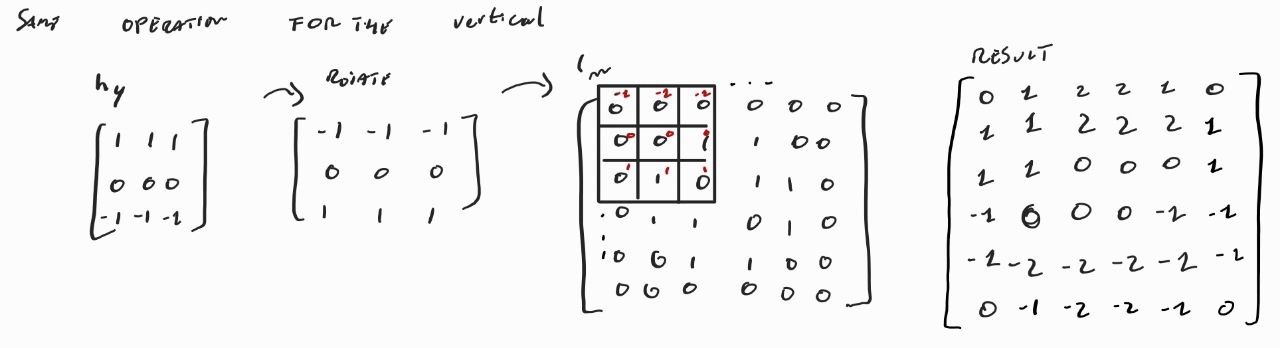 SAME OPERATION FOR THE vertical
hy
1 1 1
0 0 0
-1 -1 -1
ROTATE
-1 -1 -1
0 0 0
1 1 1
Im
...
-1 -1 -1
0 0 0 0 0 0
0 0 0
0 0 1 1 0 0
1 1 1
0 1 0 1 1 0
0 1 1 0 1 0
0 0 1 1 0 0
0 0 0 0 0 0
RESULT
0 1 2 2 1 0
1 1 2 2 2 1
1 1 0 0 0 1
-1 0 0 0 -1 -1
-1 -2 -2 -2 -1 -1
0 -1 -2 -2 -1 0